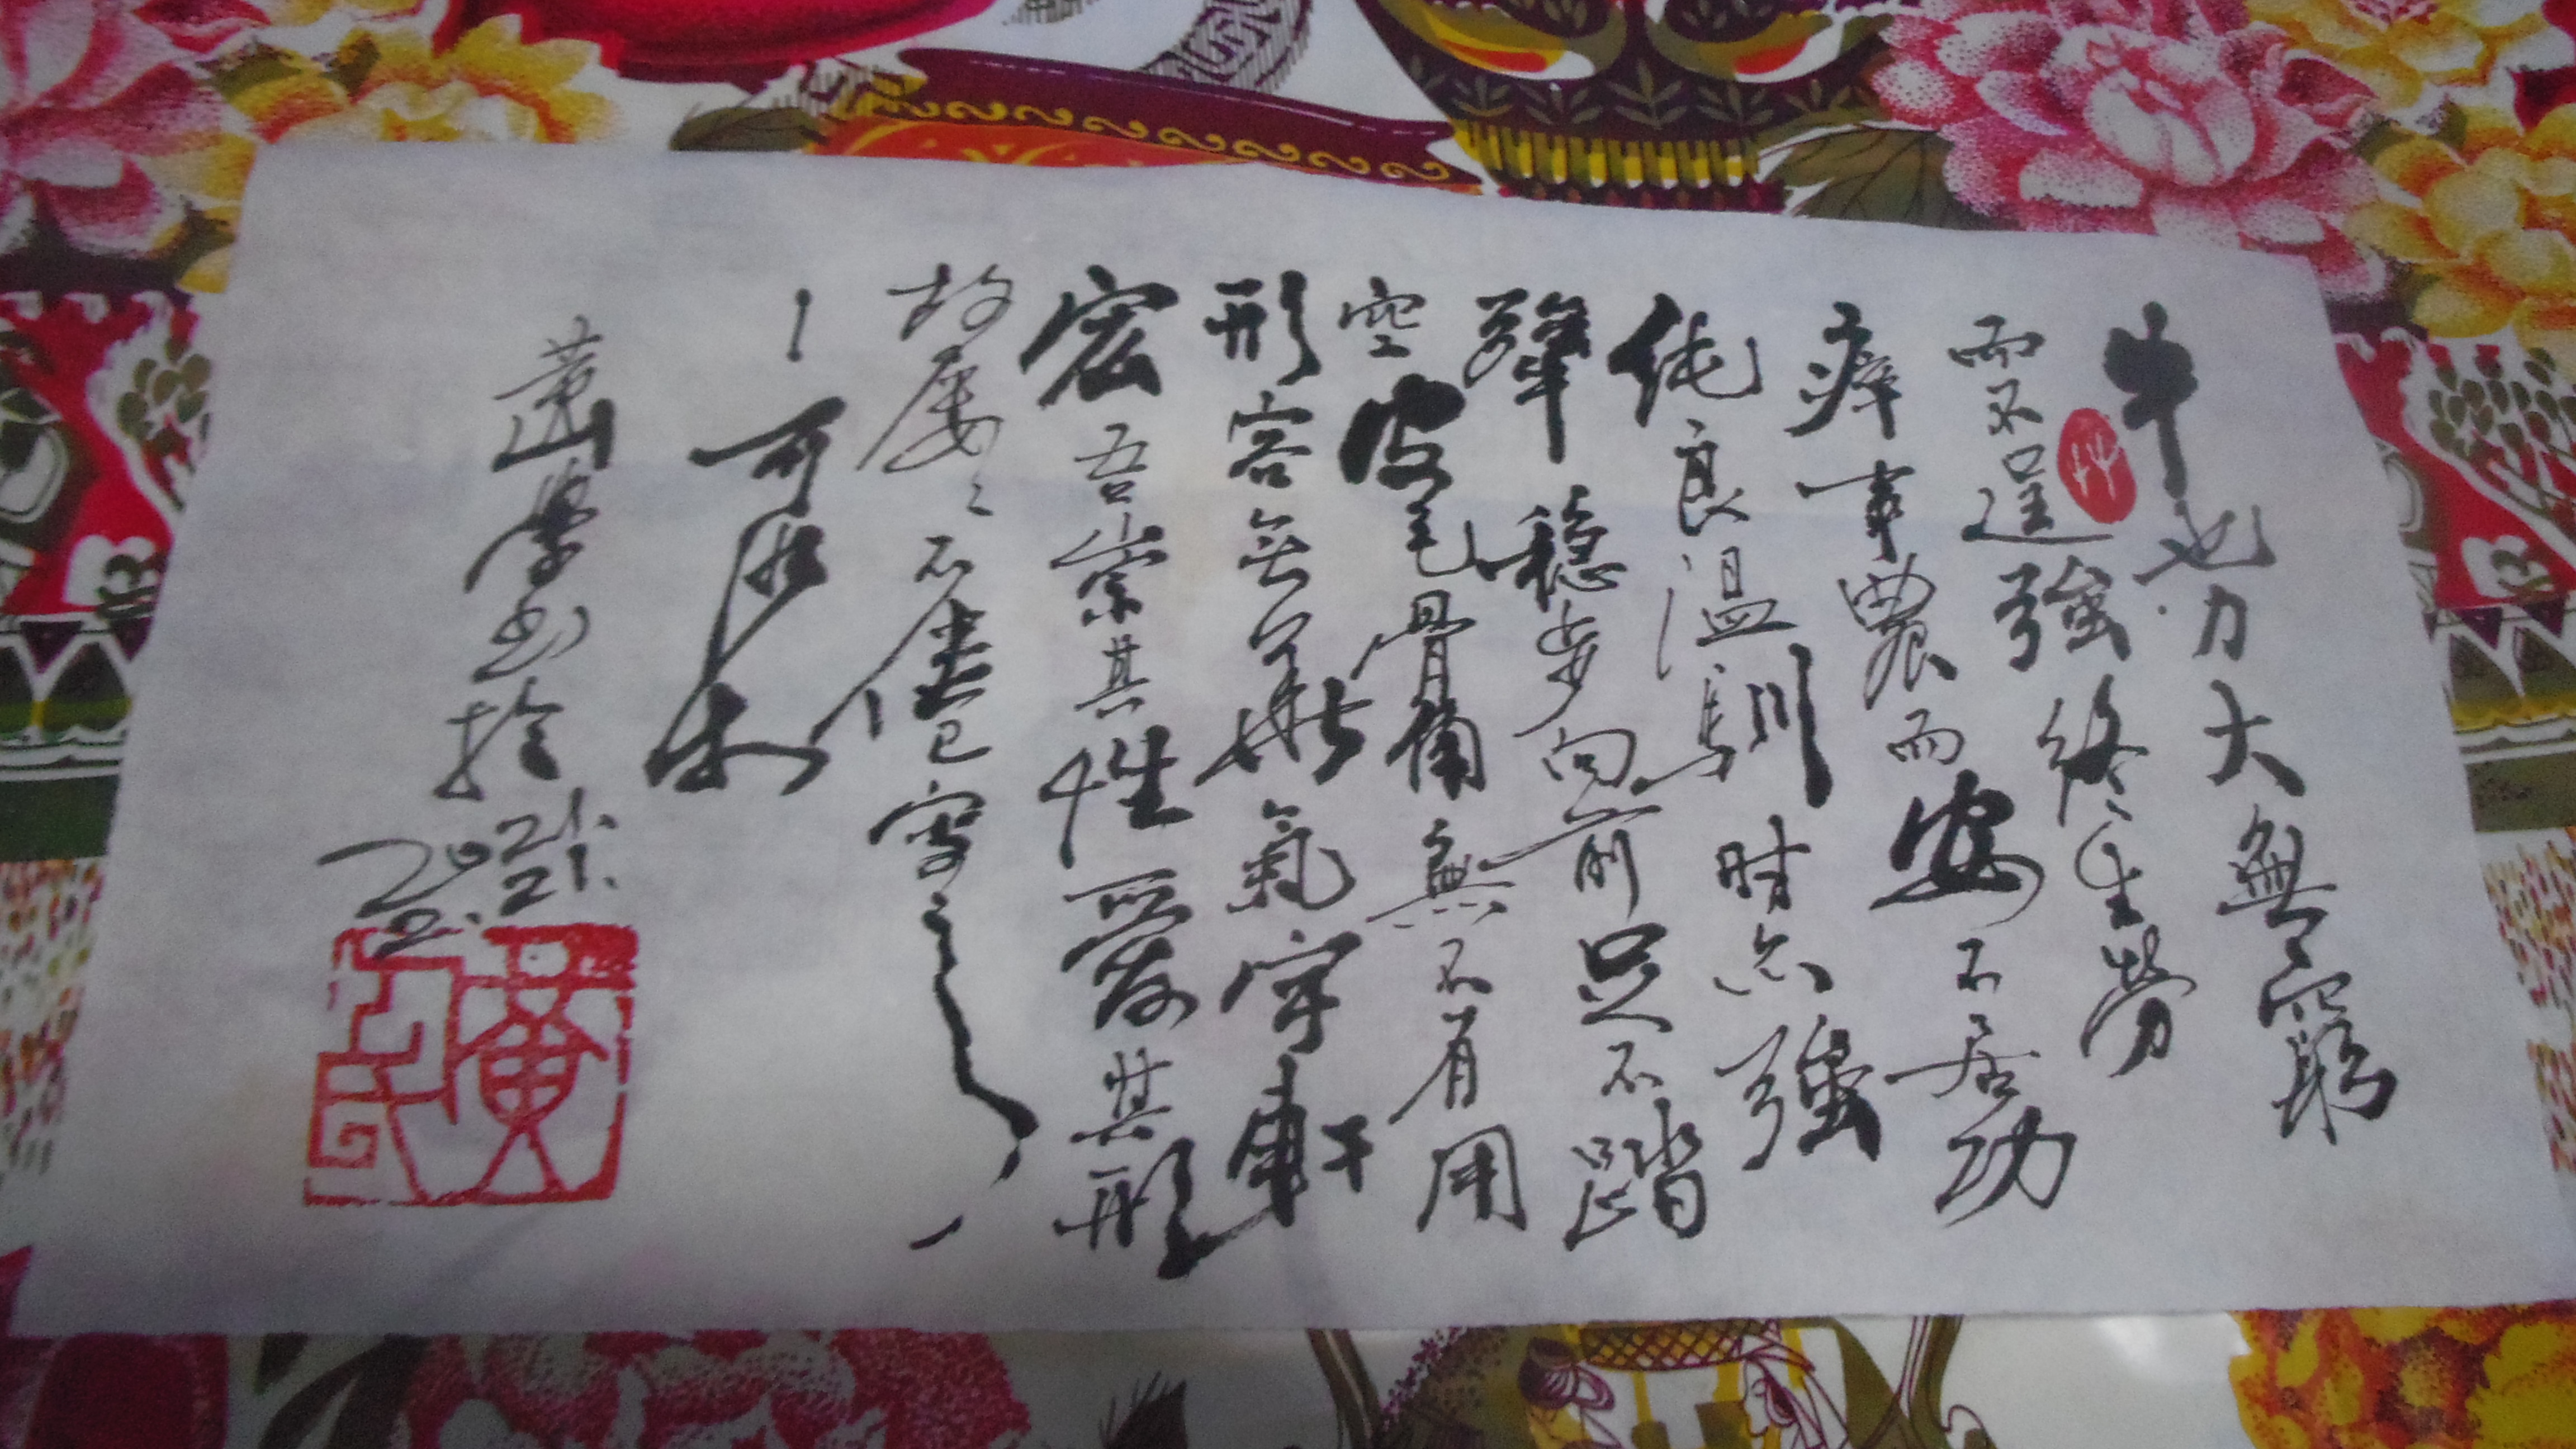 牛也力大無窮
而不逞強終生勞
瘁事農而安不居功
純良溫馴時亦強
犟穩步向前足不踏
空皮毛骨角無不有用
形容无華氣宇軒
宏吾崇其性愛其形
故屢々不倦已寫之
可染
黃山學書於